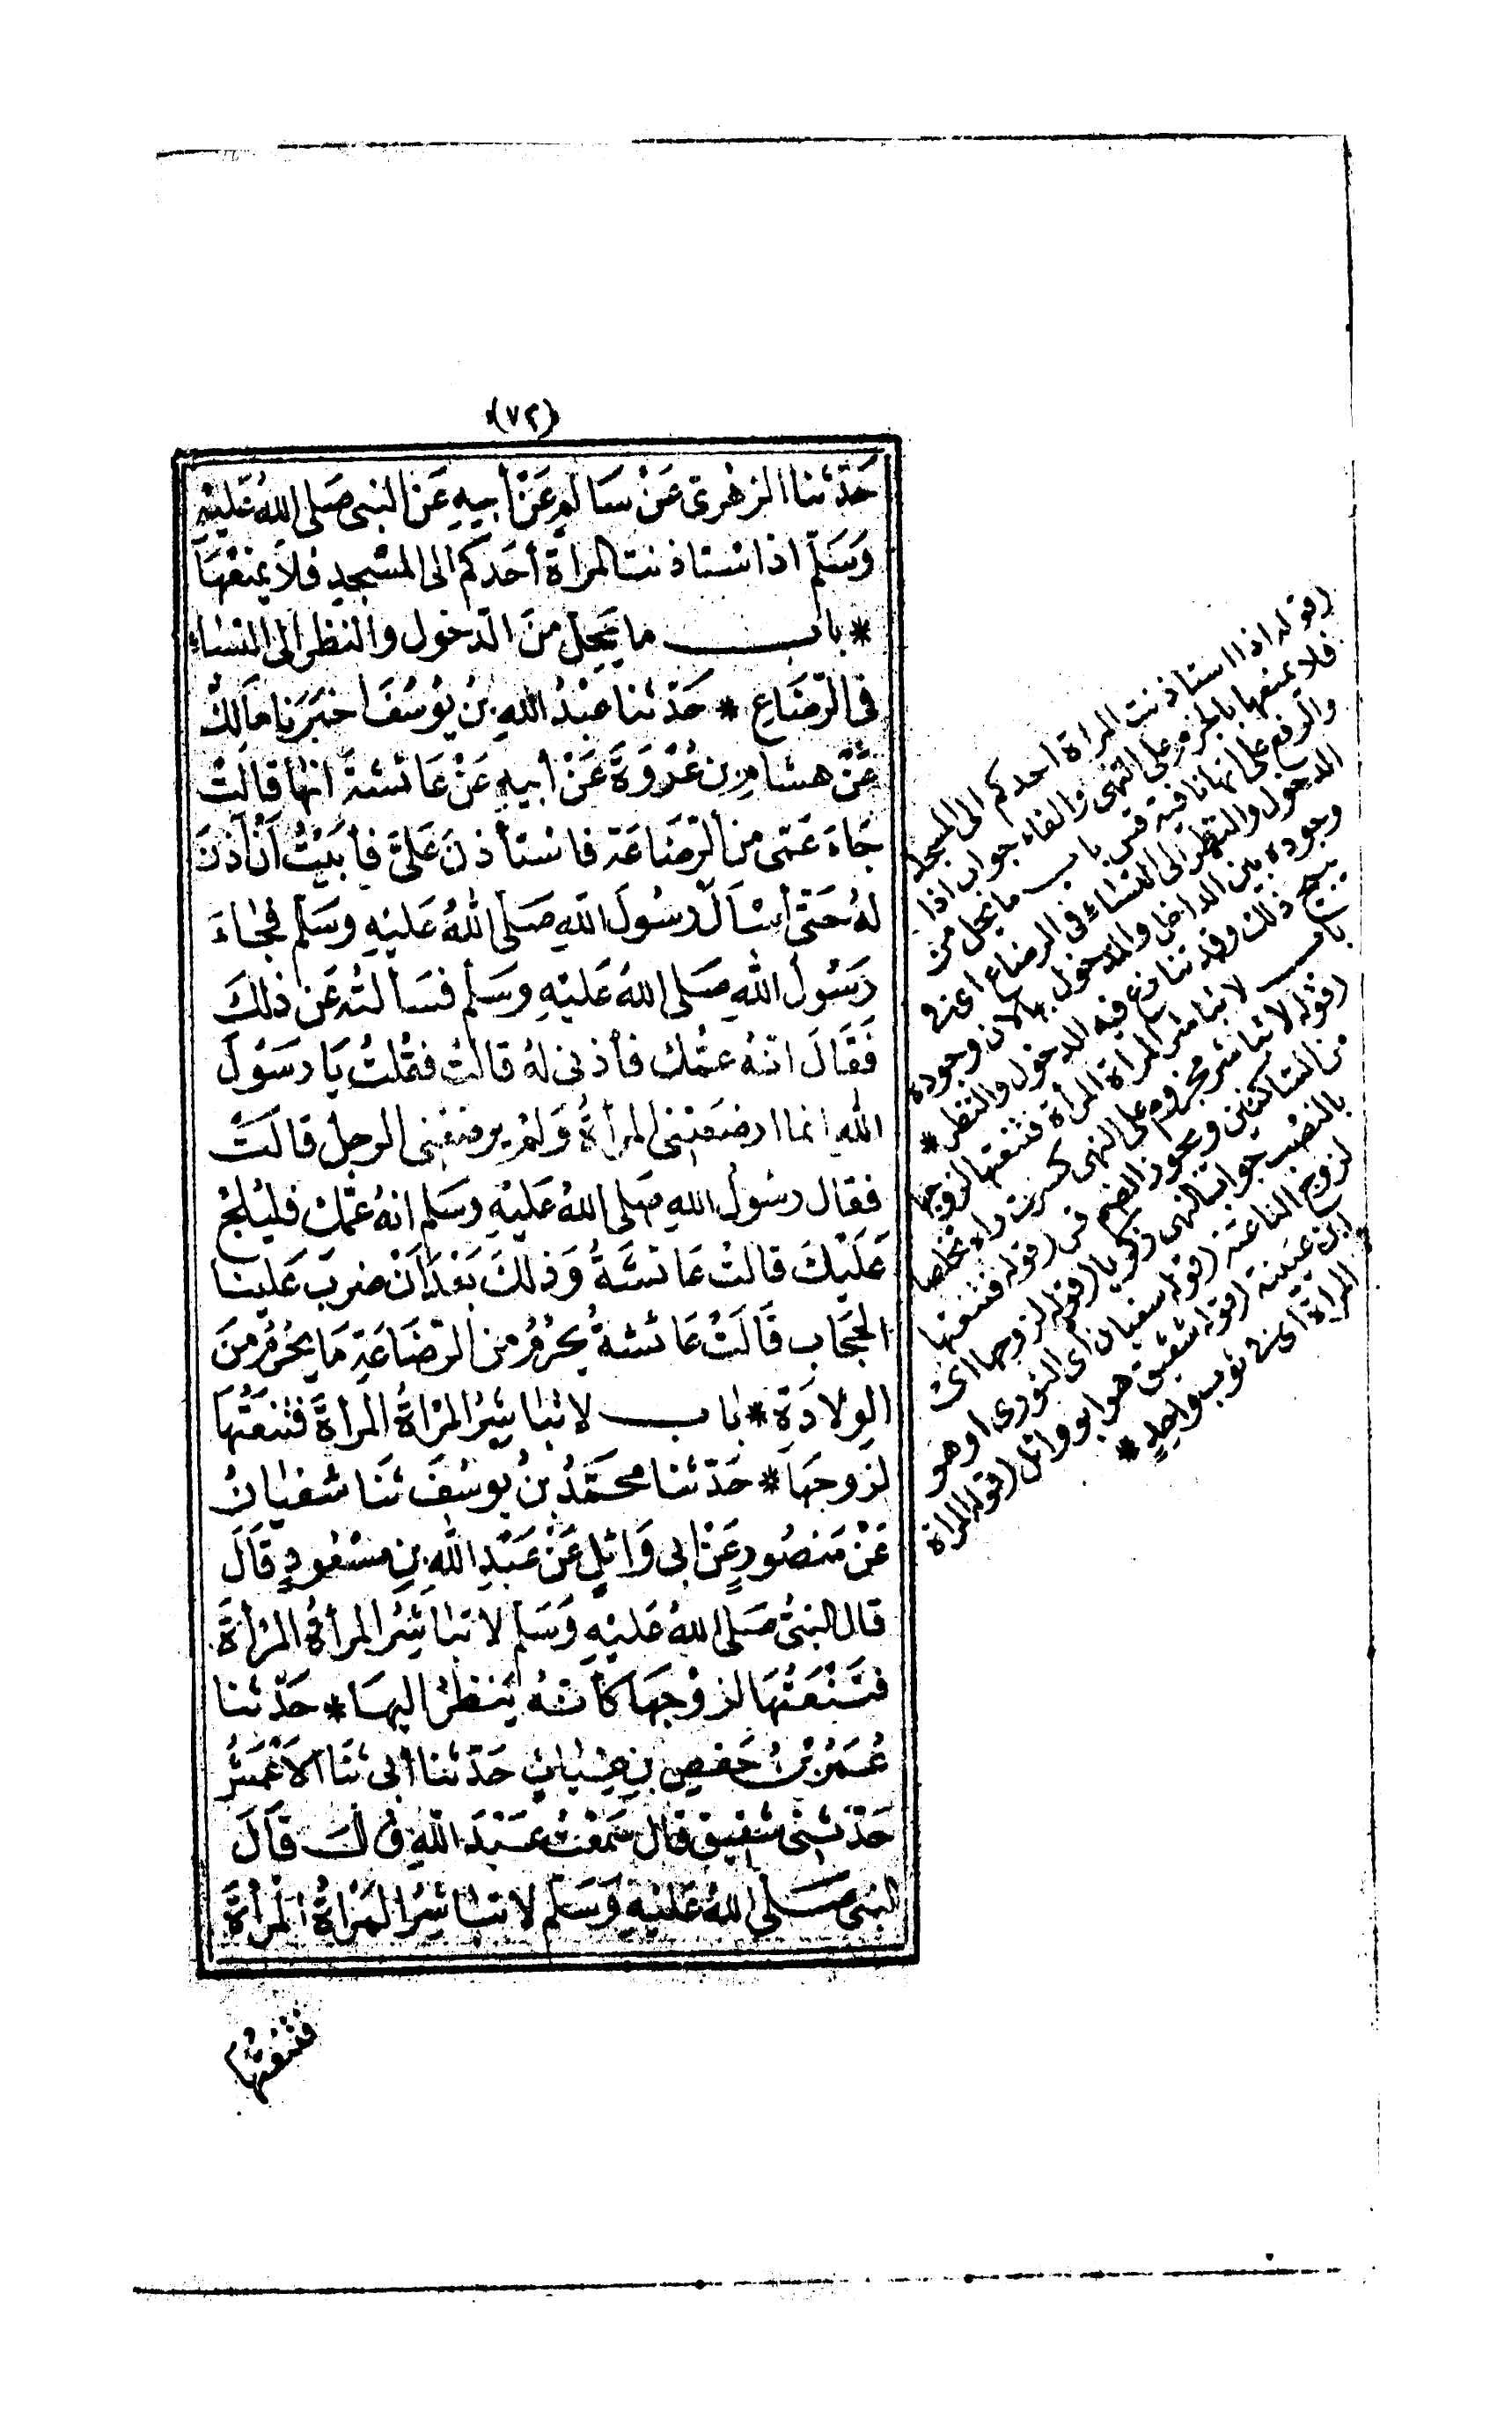 (٧٢)
حَدَّثنا الزهرى عَنْ سَالِمٍ عَنْ أبيهِ عَنْ النبى صَلى اللهُ عَليْهِ
وَسَلّم اذا استاذنت المراة أحَدكم الى المسْجِدِ فلا يمنعْهَا
* باب ما يَحِلّ منَ الدّخول والنظر الى النساء
فى الرّضَاعِ * حَدّثنا عَبْدُ اللهِ بنُ يُوسُفَ اخبَرَنا مَالِكٌ
عَنْ هشام بن عُرْوَةَ عَنْ أبيهِ عَنْ عَائشةَ انها قالَتْ
جَاءَ عَمّى من الرّضَاعَة فاستأذنَ عَلَىَّ فأبَيْتُ أنْ آذنَ
لهُ حَتّى أسْأل رسُولَ اللهِ صَلى اللهُ عَليْهِ وسَلّم فجَاءَ
رَسُولُ اللهِ صَلى اللهُ عَليْهِ وسَلّم فسَألتُه عَن ذلكَ
فَقَالَ انّهُ عمّك فأذنى لهُ قالَتْ فقلتُ يَا رَسُولَ
اللهِ انما ارضعَتْنى المرأةُ وَلمْ يرضعْنى الرجل قالَتْ
فقال رسُولُ اللهِ صَلى اللهُ عَليْهِ وسَلم انهُ عَمّك فليَلجْ
عَلَيْكَ قالتْ عَائشَةُ وَذلكَ بَعْدَ أنْ ضربَ عَلينَا
الحجَاب قَالَتْ عَائشةُ يحْرُمُ من الرّضَاعَةِ مَا يَحْرُمُ منَ
الوِلادَةِ * باب لا تباشِرُ المرْاةُ المرأةَ فتنعَتَهَا
لزَوجَهَا * حَدّثنا محَمّدُ بنُ يوسُفَ ثنَا سُفيَانُ
عَنْ مَنصُورٍ عَنْ ابى وَائلٍ عَنْ عَبْدِ اللهِ بنِ مسْعُودٍ قَالَ
قال النبىُّ صَلى اللهُ عَليْهِ وَسَلم لا تبَاشِرُ المرأةُ المرْأةَ
فتَنْعَتُهَا لزوْجهَا كأنّهُ يَنظرُ اليهَا * حَدّثنا
عُمَرُ بْنُ حَفصِ بنِ غيَاثٍ حَدّثنَا أبى ثنَا الأعْمَشُ
حَدّثنى شقيق قال سَمعْتُ عَبْدَ اللهِ قالَ قَالَ
النبى صَلى اللهُ عَليْهِ وَسَلّم لا تبَاشِرُ المَرْاةُ المرْأةَ
فتنعتُها
(قوله اذا استاذنت المراة احدكم الى المسجد
فلا يمنعها بالجزم على النهى والفاء جواب اذا
والرفع على انها نافية قس باب ما يحل من
الدخول والنظر الى النساء فى الرضاع اى
وجوده بين الداخل والمدخول بها لان وجوده
يبيح ذلك وقد تنازع فيه الدخول والنظر *
باب لا تباشر المراة المرأة فتنعتها لزوجها
(قوله لا تباشر مجزوم على النهى كسرت راؤه تخلصا
من الساكنين ويجوز الضم قس (قوله فتنعتها
بالنصب جواب النهى زكريا (قوله لزوجها اى
لزوج الناعتة (قوله سفيان اى الثورى او هو
ابن عيينة (قوله شقيق هو ابو وائل (قوله المراة
المراة اى فى ثوب واحدٍ *